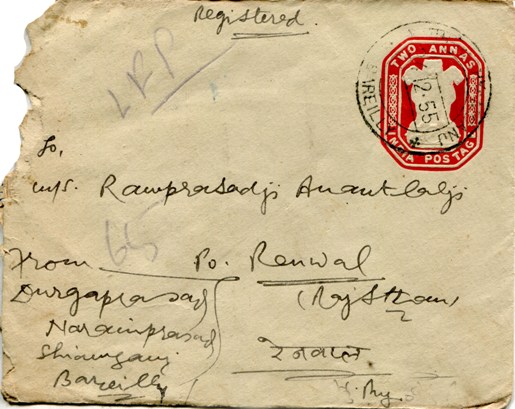 Registered.
LRP
TWO ANNAS
12.55
INDIA POSTAGE
To,
M/s. Ramprasadji Anantlalji
65
From
Po. Renwal
Durgaprasad
(Rajsthan)
Narainprasad
Shiamganj
रेनवाल
Bareilly